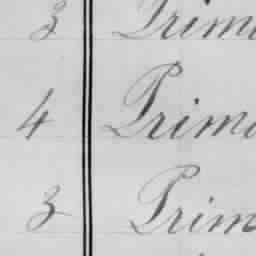 3 Prim
4 Prim
3 Prim